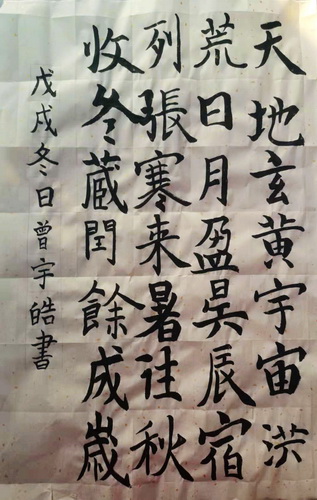 天地玄黃宇宙洪
荒日月盈昃辰宿
列張寒来暑往秋
收冬蔵閏餘成嵗
戊戌冬日曾宇皓書